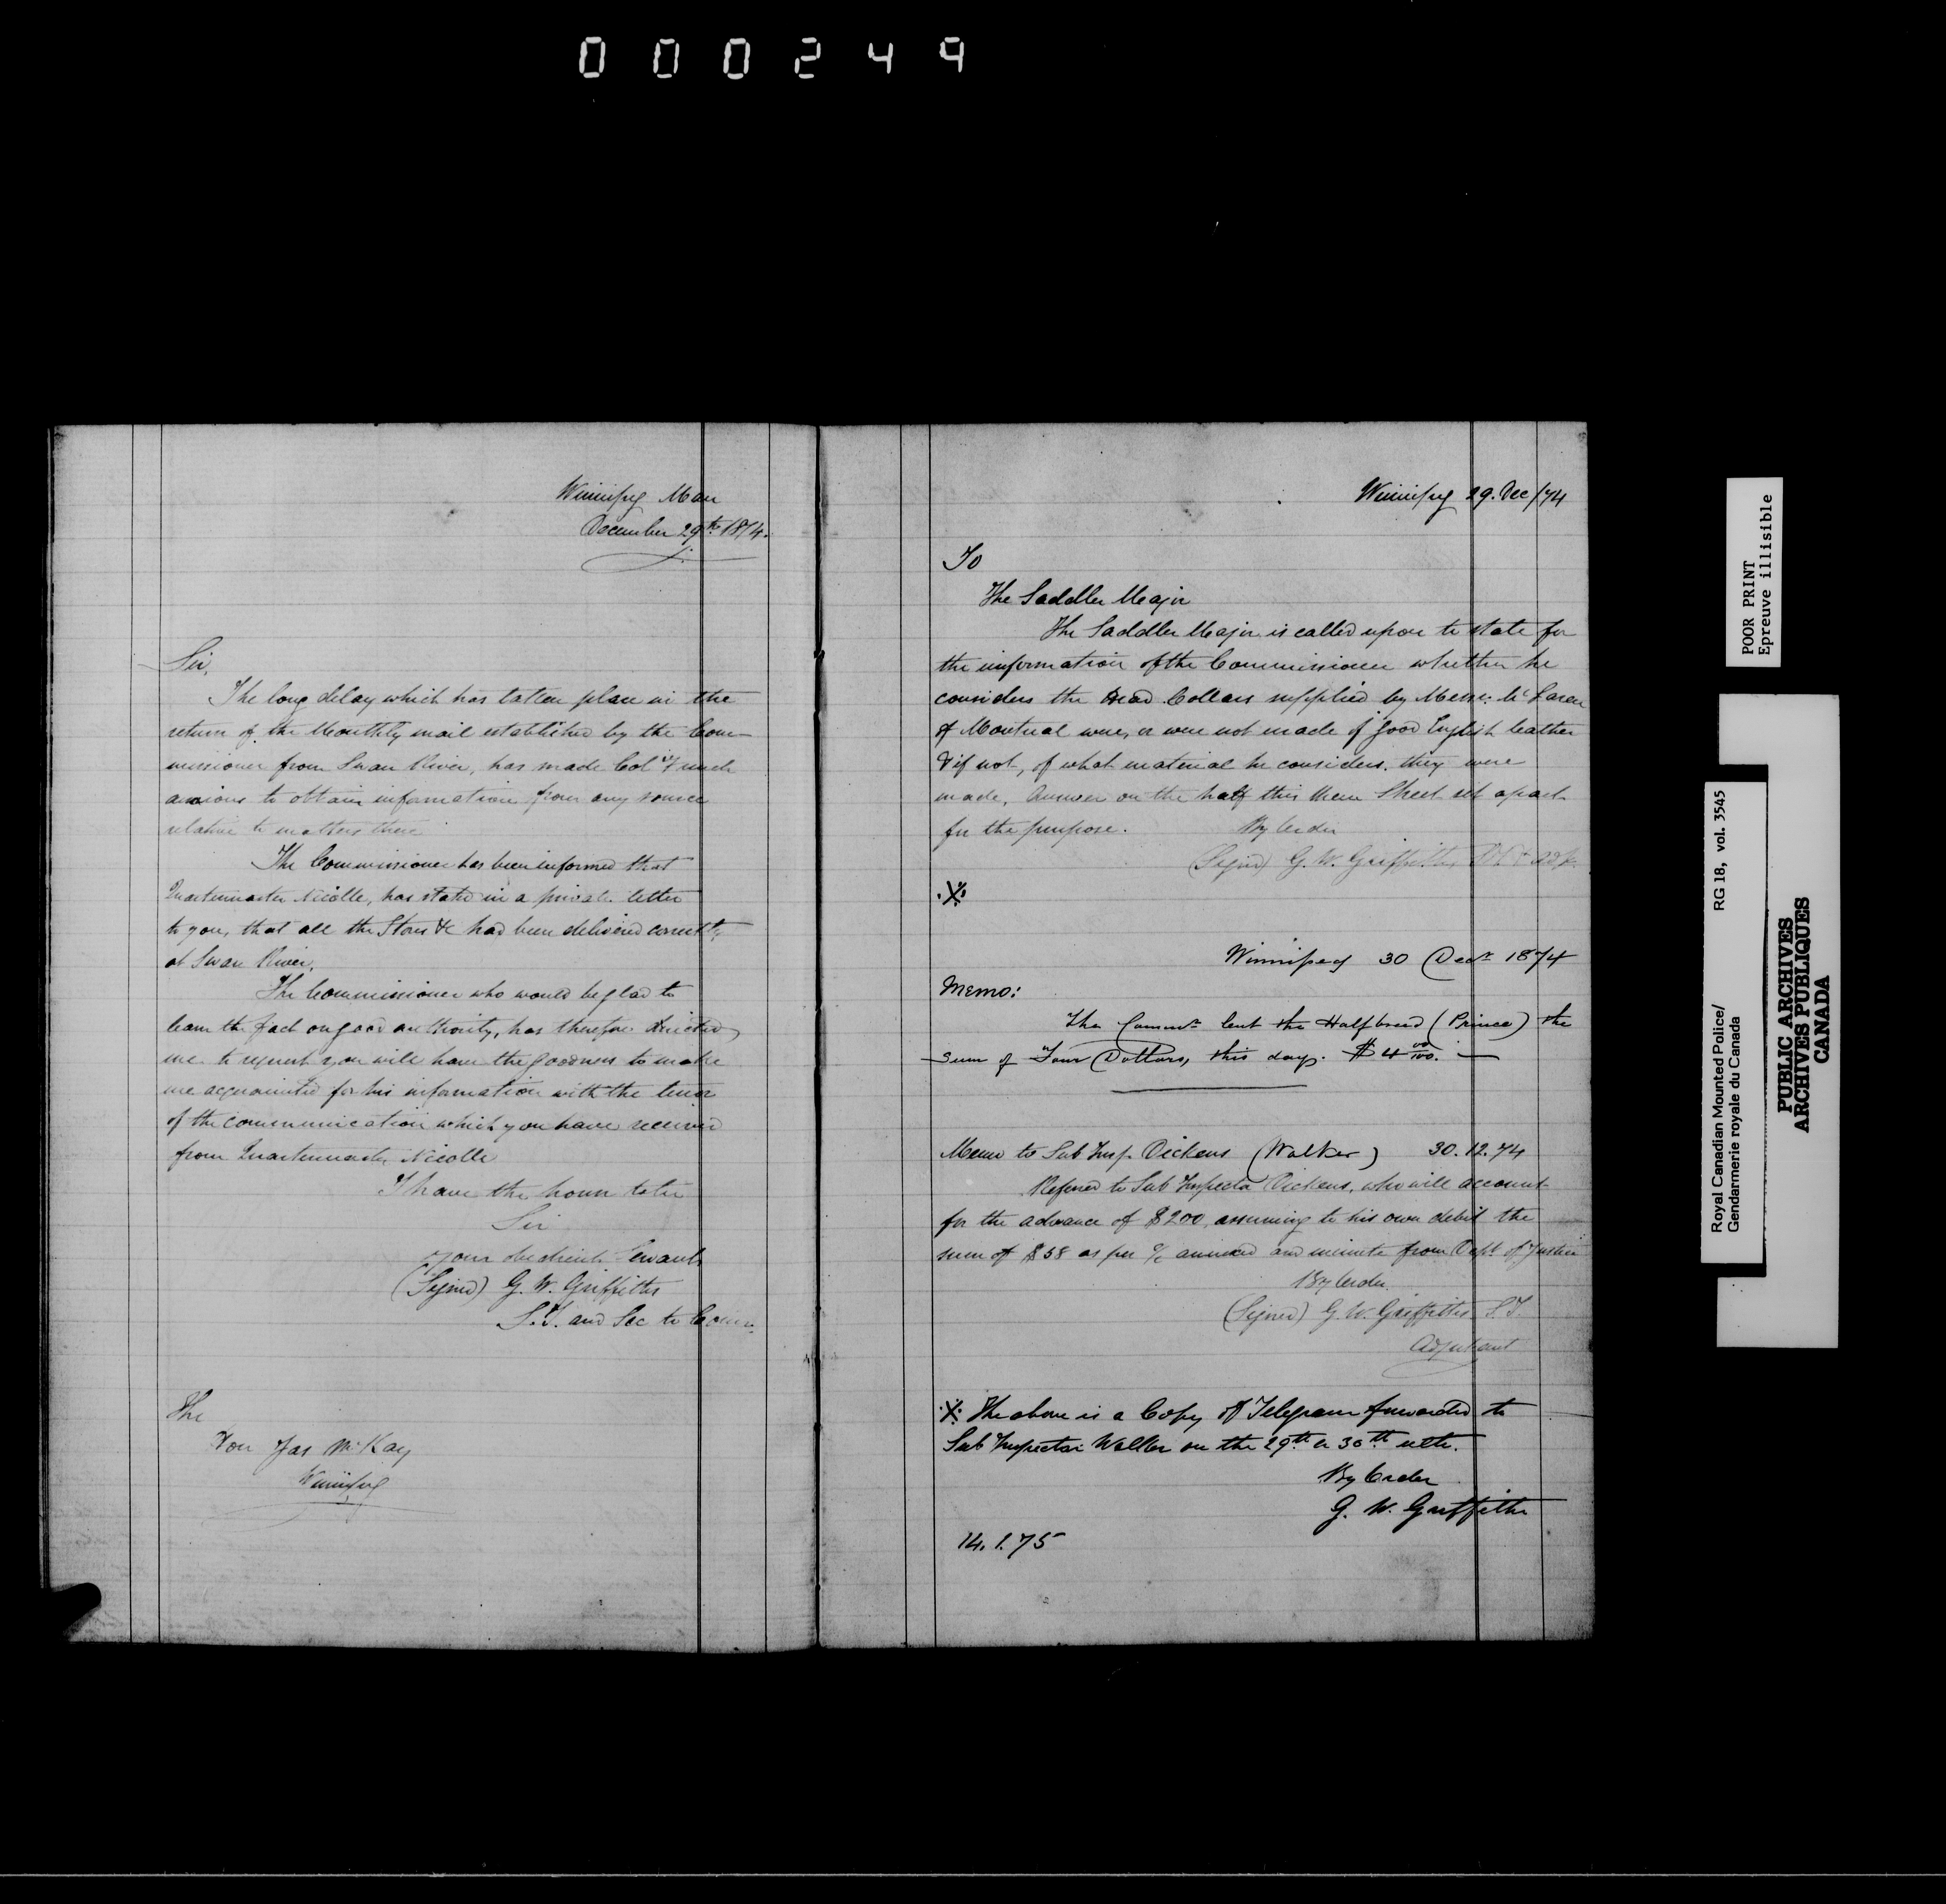 000249
Winnipeg Man
December 29th 1874.
Sir,
The long delay which has taken place in the
return of the Monthly mail established by the Com-
missioner from Swan River, has made Col F much
anxious to obtain information from any source
relative to matters there
The Commissioner has been informed that
Quartermaster Nicolle, has stated in a private letter
to you, that all the Stores &c had been delivered correctly
at Swan River.
The Commissioner who would be glad to
learn the fact on good authority, has therefore directed
me to request you will have the goodness to make
me acquainted for his information with the tenor
of the communication which you have received
from Quartermaster Nicolle
I have the honor to be
Sir
your obedient Servant
(Signed) G. W. Griffiths
S.I. and Sec to Comr
The
Hon Jas McKay
Winnipeg
Winnipeg 29. Dec/74
To
The Saddler Major
The Saddler Major is called upon to state for
the information of the Commissioner whether he
considers the Head Collars supplied by Messrs McLaren
of Montreal were, or were not made of good English leather
& if not, of what material he considers they were
made, Answer on the half this Memo Sheet set apart
for the purpose. By Order
(Signed) G. W. Griffiths, S.I. & Adjt.
※
Winnipeg 30 Decr 1874
Memo:
The Commr lent the Halfbreed (Prince) the
sum of Four Dollars, this day. $4 00/100. —
Memo to Sub Insp. Dickens (Walker) 30.12.74
Referred to Sub Inspector Dickens, who will account
for the advance of $200, assuming to his own debit the
sum of $58 as per a/c annexed and minute from Dept of Justice
By Order.
(Signed) G. W. Griffiths S.I.
Adjutant
※ The above is a Copy of Telegram forwarded to
Sub Inspector Walker on the 29th or 30th ulto.
By Order
G. W. Griffiths
14.1.75
POOR PRINT
Epreuve illisible
Royal Canadian Mounted Police/ RG 18, vol. 3545
Gendarmerie royale du Canada
PUBLIC ARCHIVES
ARCHIVES PUBLIQUES
CANADA